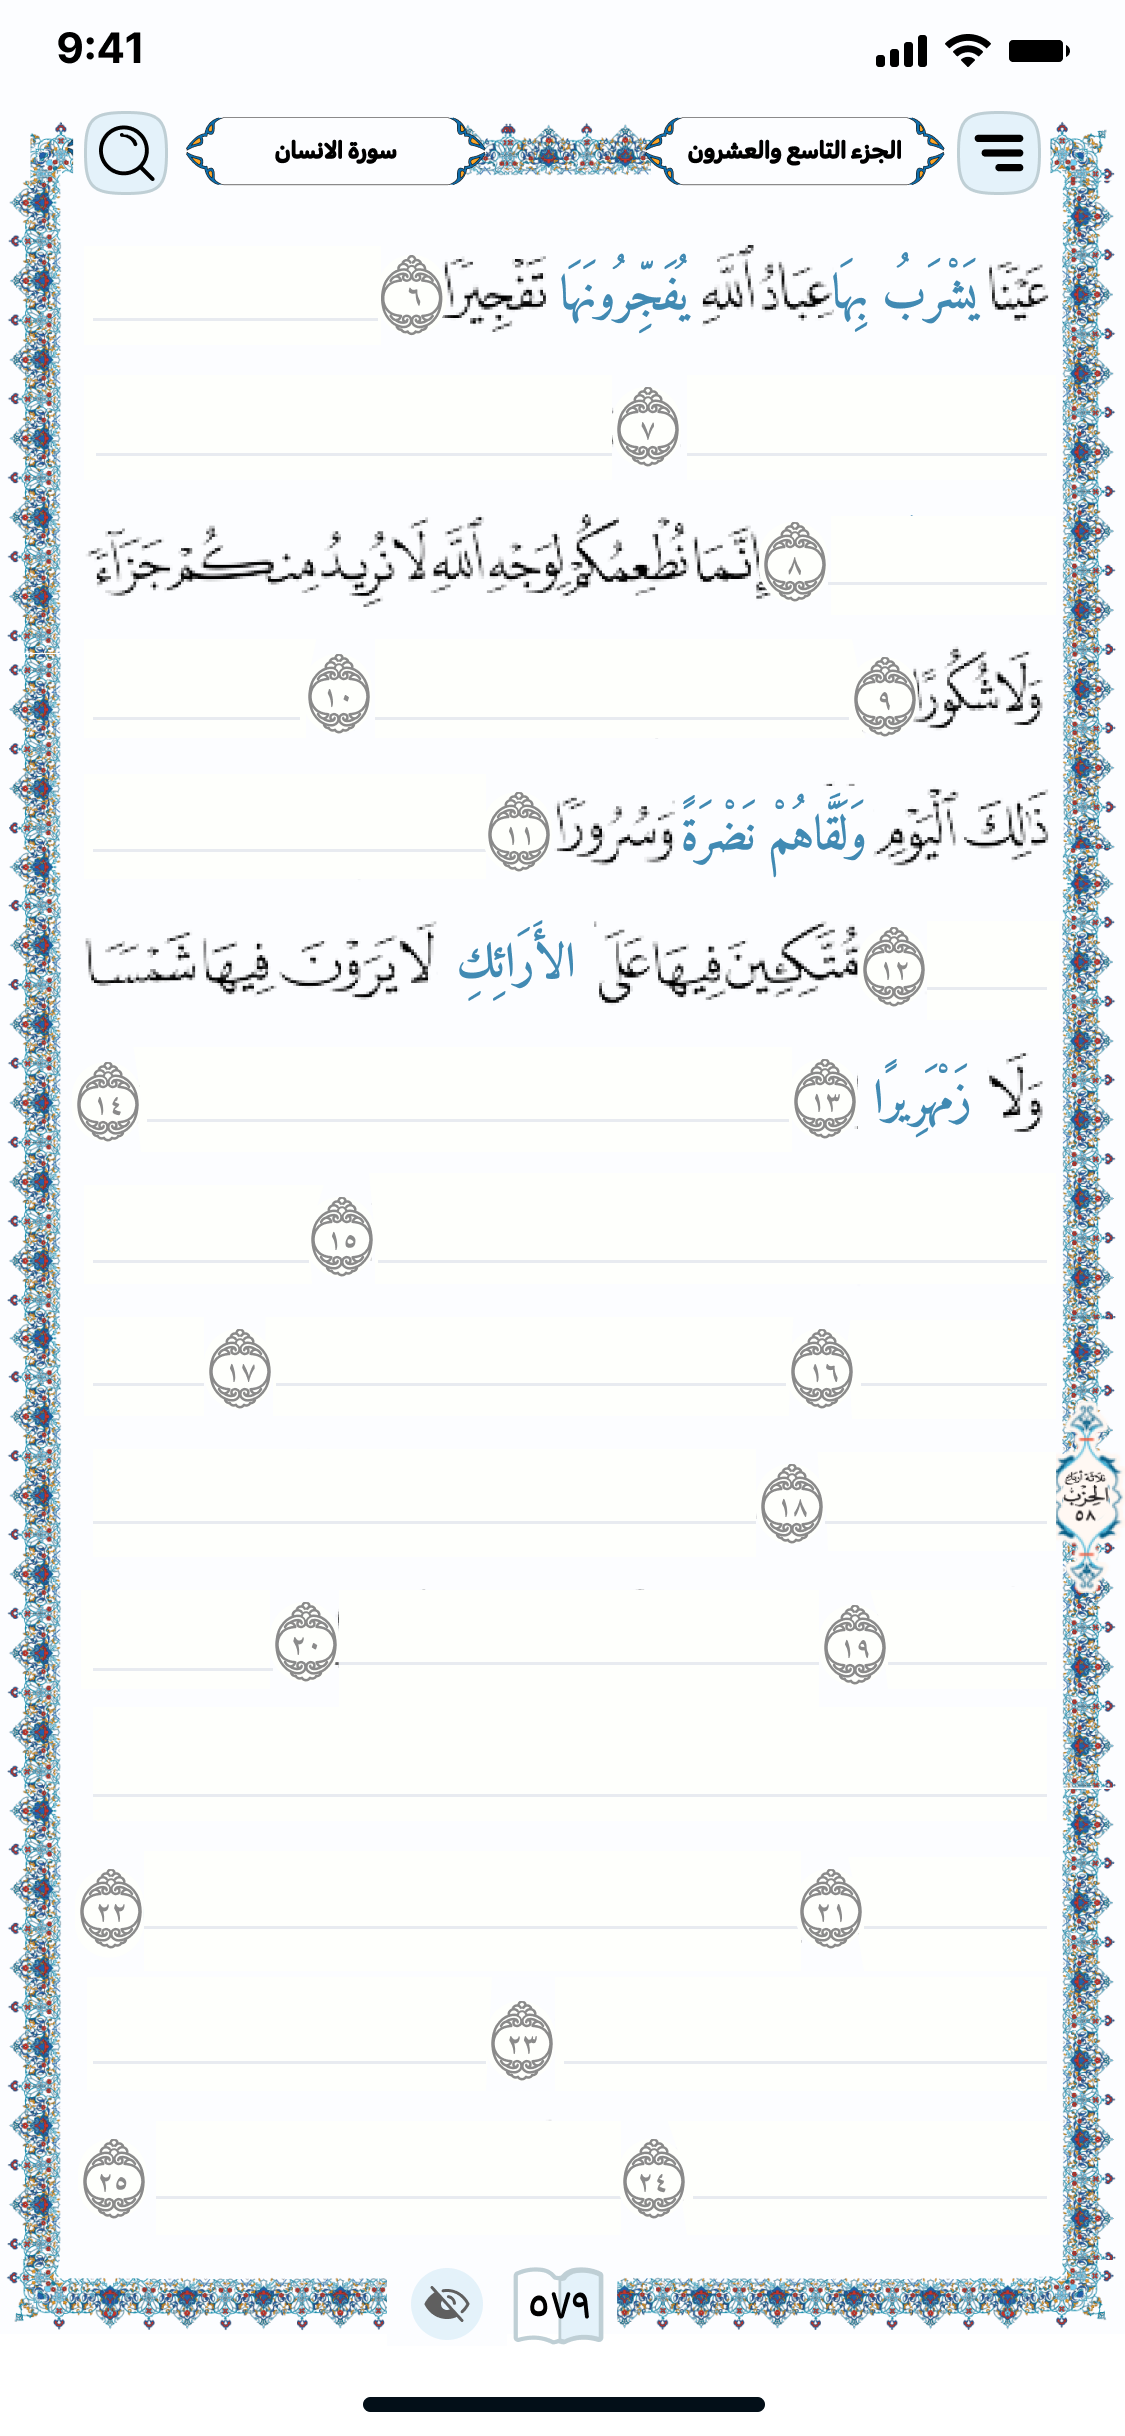 9:41
سورة الانسان
الجزء التاسع والعشرون
عَيْنًا يَشْرَبُ بِهَا عِبَادُ ٱللَّهِ يُفَجِّرُونَهَا تَفْجِيرًا ٦
٧
٨ إِنَّمَا نُطْعِمُكُمْ لِوَجْهِ ٱللَّهِ لَا نُرِيدُ مِنكُمْ جَزَآءً
وَلَا شُكُورًا ٩ ١٠
ذَٰلِكَ ٱلْيَوْمِ وَلَقَّاهُمْ نَضْرَةً وَسُرُورًا ١١
١٢ مُّتَّكِـِٔينَ فِيهَا عَلَى الأَرَائِكِ لَا يَرَوْنَ فِيهَا شَمْسًا
وَلَا زَمْهَرِيرًا ١٣ ١٤
١٥
١٦ ١٧
١٨
ثلاثة أرباع
الحزب
٥٨
١٩ ٢٠
٢١ ٢٢
٢٣
٢٤ ٢٥
٥٧٩